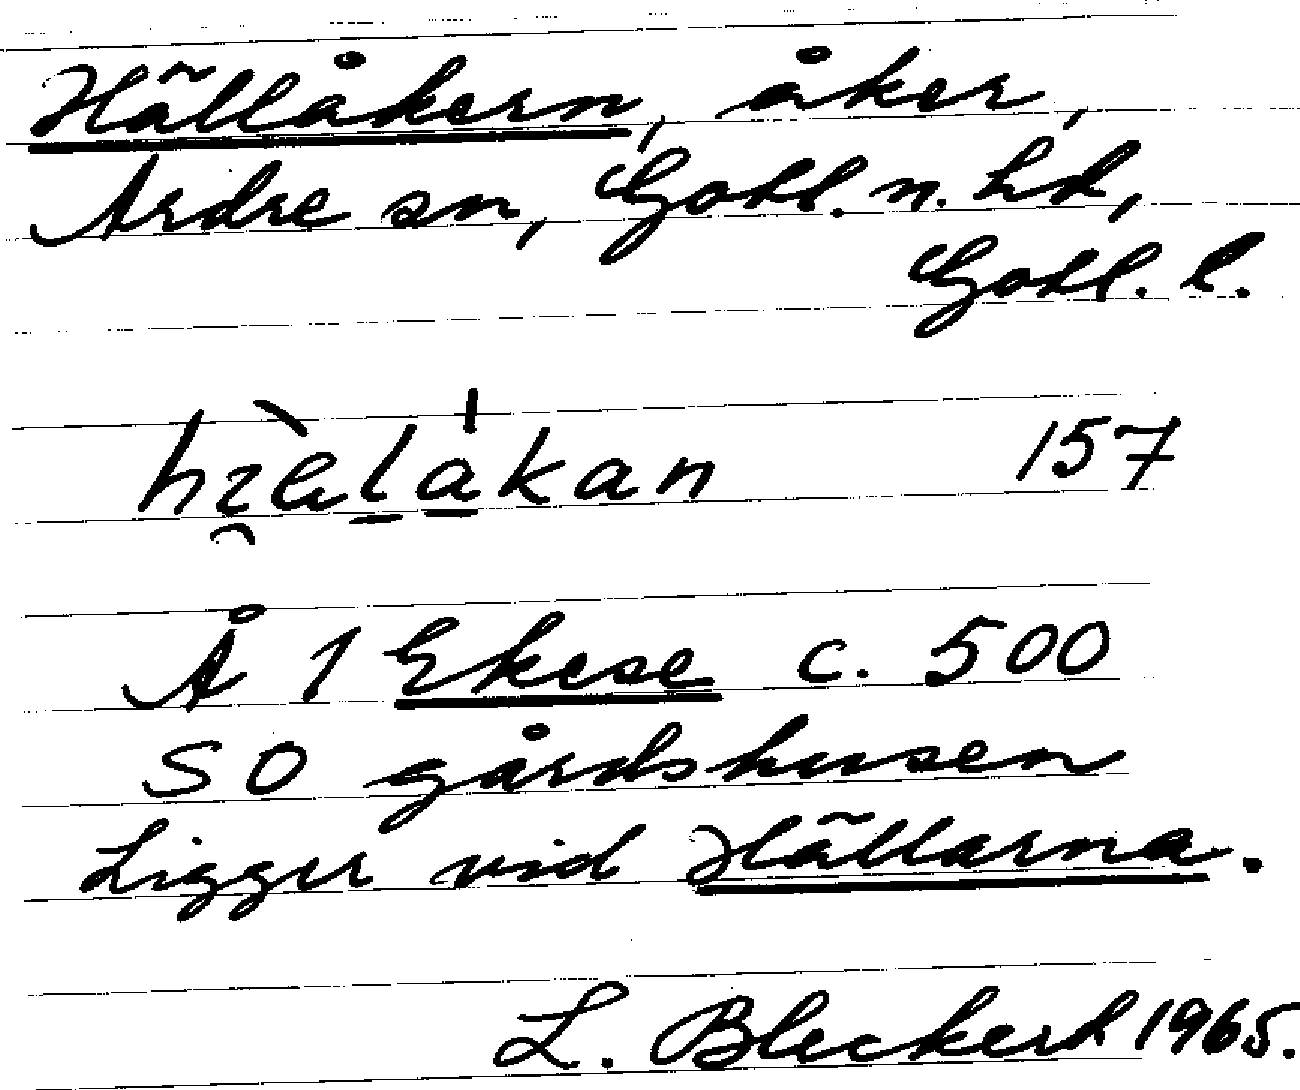 Hällåkern, åker,
Ardre sn, Gotl. n. hd,
Gotl. l.
157
Å 1 Ekese c. 500
SO gårdshusen
Ligger vid Hällarna.
L. Bleckert 1965.